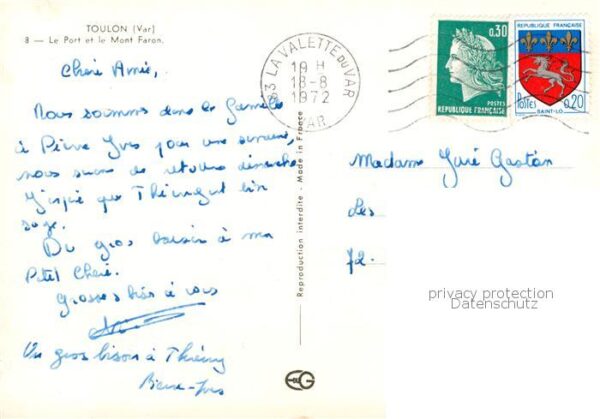 TOULON (Var)
8 — Le Port et le Mont Faron.
Chère Amie,
Nous sommes dans la famille
à Pierre Yves pour une semaine,
nous serons de retour dimanche
J'espère que Thierry est bien
sage.
Du gros baiser à ma
Petit Chéri.
Grosses bises à vous
Un gros bison à Thierry
Pierre-Yves
83 LA VALETTE DU VAR
19 H
18-8
1972
VAR
0,30
POSTES
REPUBLIQUE FRANÇAISE
REPUBLIQUE FRANÇAISE
Postes 0,20
SAINT-LO
Madame Garé Gaston
Les
72-
Reproduction interdite - Made in France
privacy protection
Datenschutz